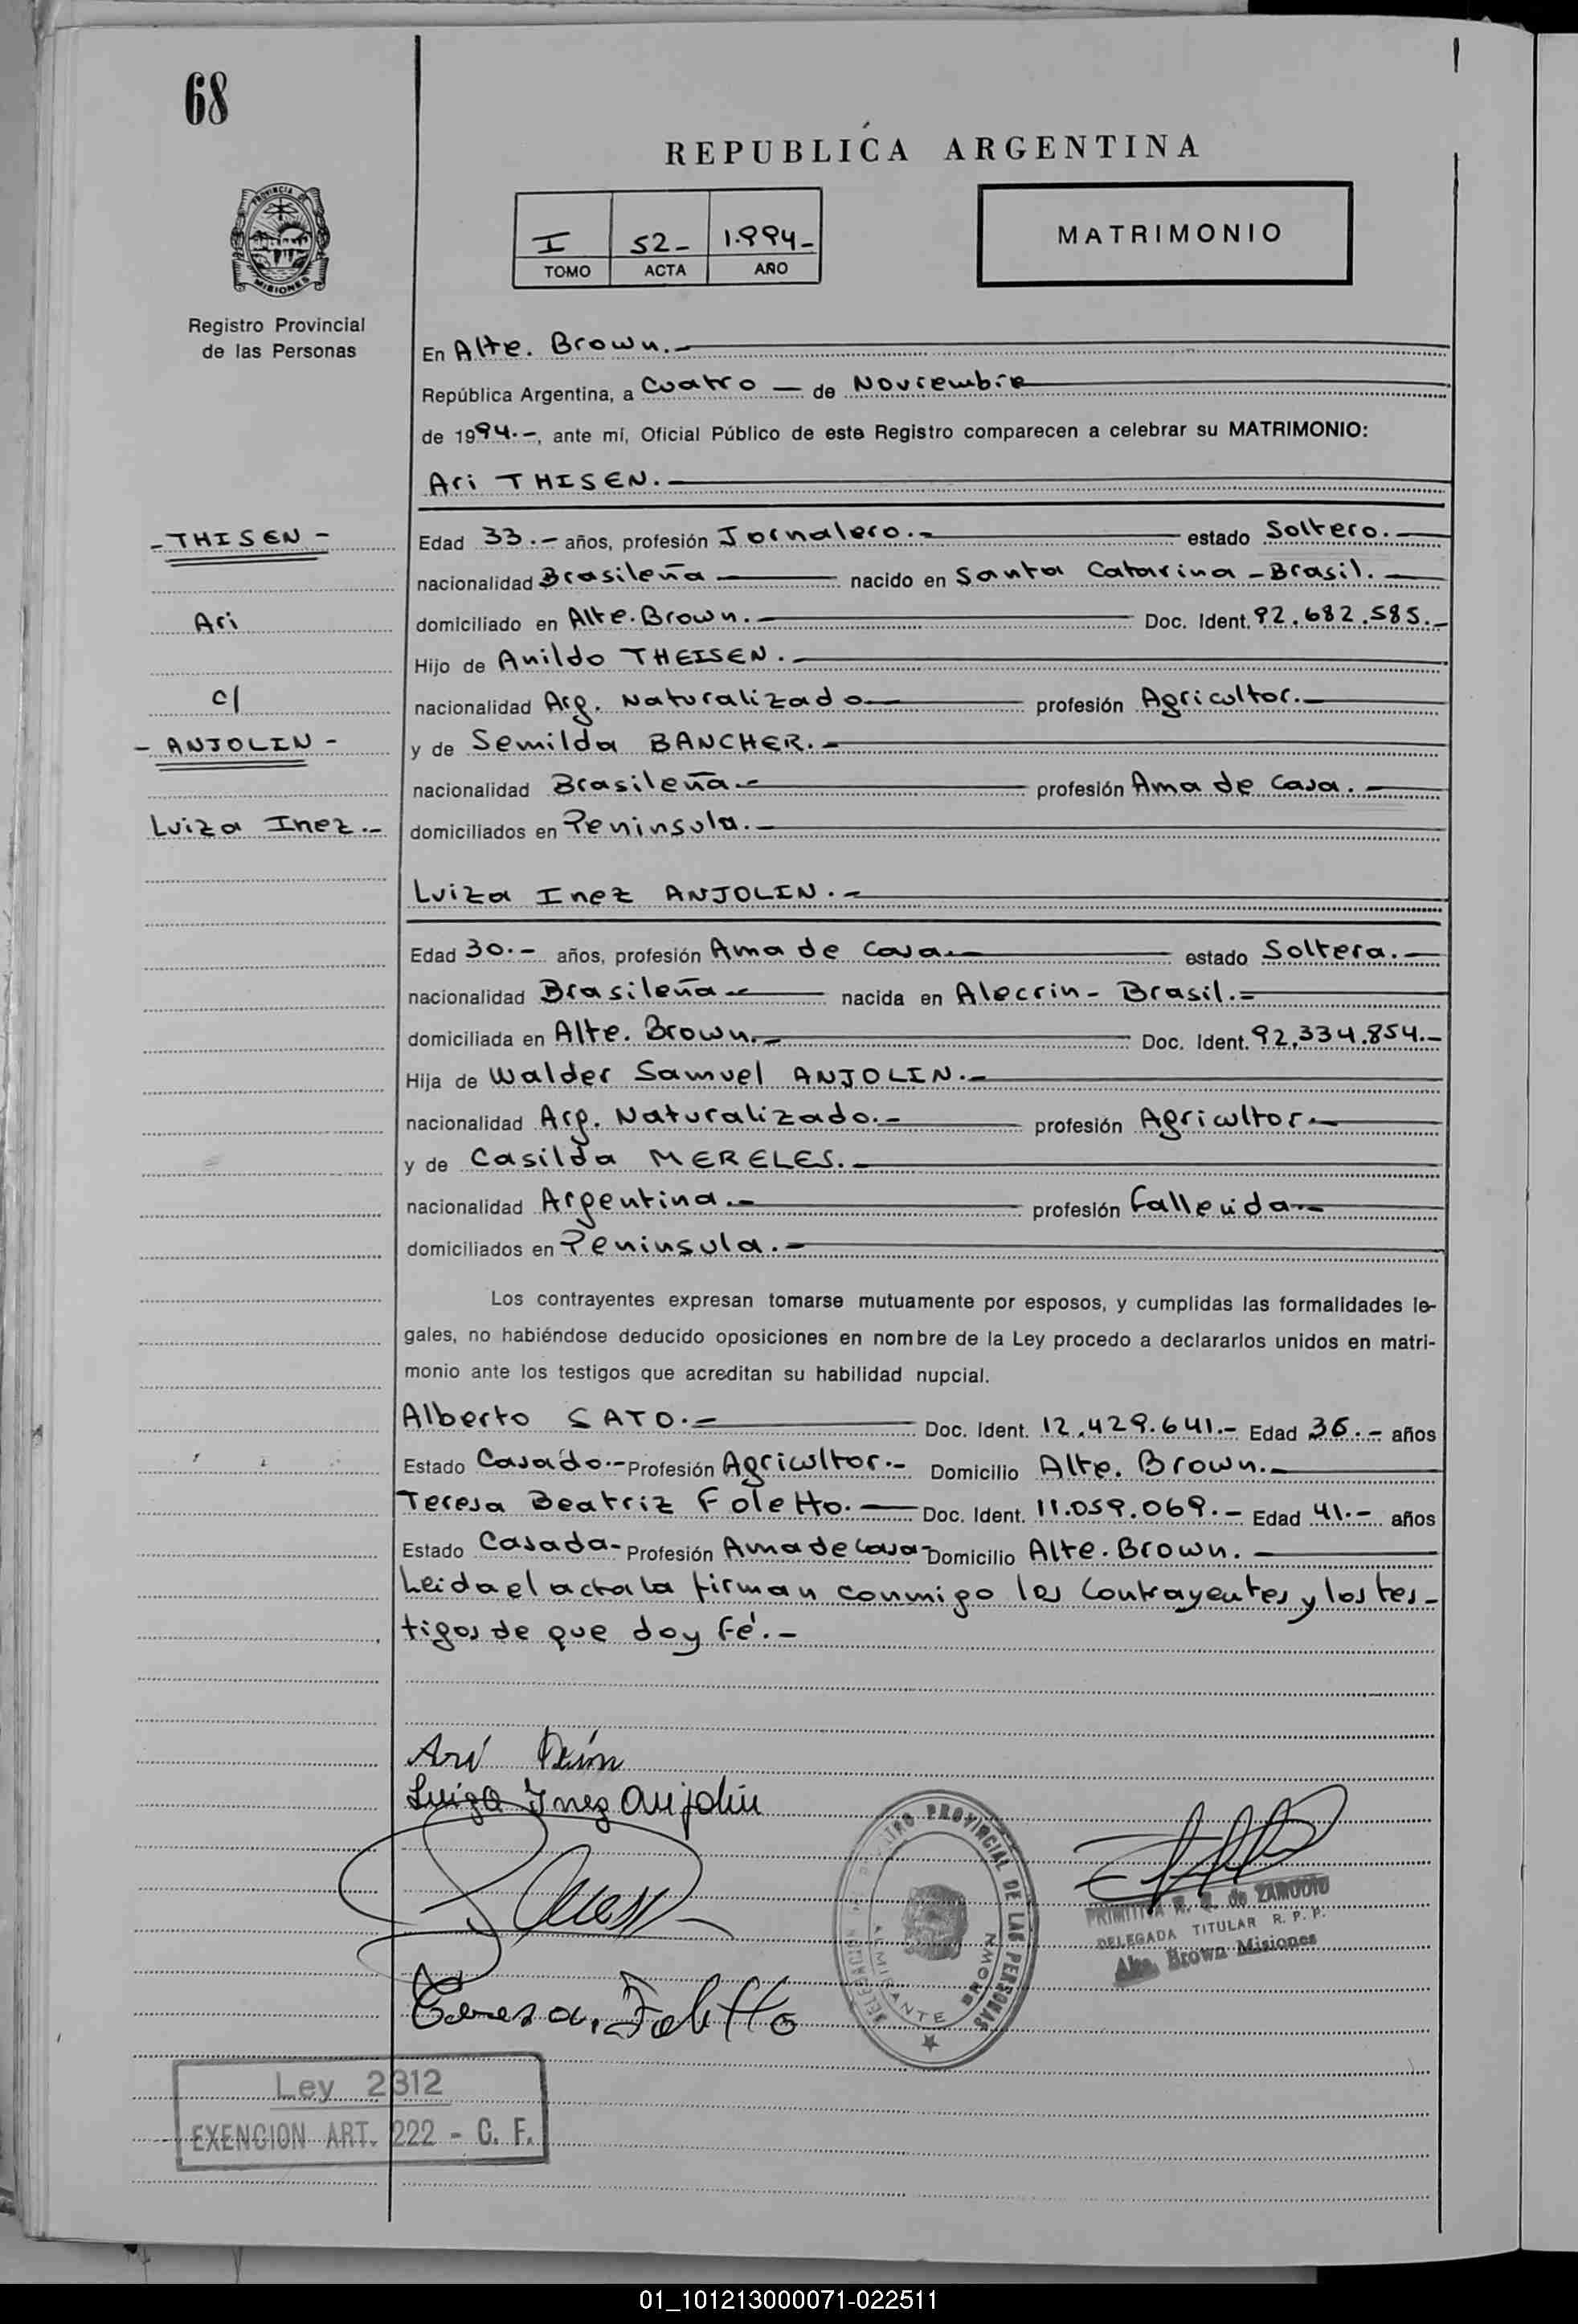 68
REPUBLICA ARGENTINA
PROVINCIA DE
MISIONES
I 52- 1.994-
TOMO ACTA AÑO
MATRIMONIO
Registro Provincial
de las Personas
En Alte. Brown.-
República Argentina, a Cuatro — de Noviembre
de 1994.-, ante mí, Oficial Público de este Registro comparecen a celebrar su MATRIMONIO:
Ari THISEN.
- THISEN -
Edad 33.- años, profesión Jornalero.- estado Soltero.-
nacionalidad Brasileña — nacido en Santa Catarina - Brasil.-
Ari
domiciliado en Alte. Brown.- Doc. Ident. 92.682.585.-
Hijo de Anildo THEISEN.-
c/
nacionalidad Arg. Naturalizado — profesión Agricultor.-
- ANJOLIN -
y de Semilda BANCHER.-
nacionalidad Brasileña.- profesión Ama de Casa.-
Luiza Inez.-
domiciliados en Peninsula.-
Luiza Inez ANJOLIN.-
Edad 30.- años, profesión Ama de Casa.- estado Soltera.-
nacionalidad Brasileña.- nacida en Alecrin - Brasil.=
domiciliada en Alte. Brown.- Doc. Ident. 92.334.854.-
Hija de Walder Samuel ANJOLIN.-
nacionalidad Arg. Naturalizado.- profesión Agricultor.-
y de Casilda MERELES.-
nacionalidad Argentina.- profesión Fallecida.-
domiciliados en Peninsula.-
Los contrayentes expresan tomarse mutuamente por esposos, y cumplidas las formalidades le-
gales, no habiéndose deducido oposiciones en nombre de la Ley procedo a declararlos unidos en matri-
monio ante los testigos que acreditan su habilidad nupcial.
Alberto SATO.- Doc. Ident. 12.429.641.- Edad 36.- años
Estado Casado.- Profesión Agricultor.- Domicilio Alte. Brown.-
Teresa Beatriz Foletto.- Doc. Ident. 11.059.069.- Edad 41.- años
Estado Casada- Profesión Ama de Casa- Domicilio Alte. Brown.
Leida el acta la firman conmigo los Contrayentes y los tes-
tigos de que doy Fé.-
Ari
Luiza Inez Anjolin
Teresa. Foletto
REGISTRO PROVINCIAL DE LAS PERSONAS
ALMIRANTE BROWN
PRIMITIVA R. Q. de ZAMUDIO
DELEGADA TITULAR R. P. P.
Alte. Brown Misiones
Ley 2312
EXENCION ART. 222 - C. F.
01_101213000071-022511